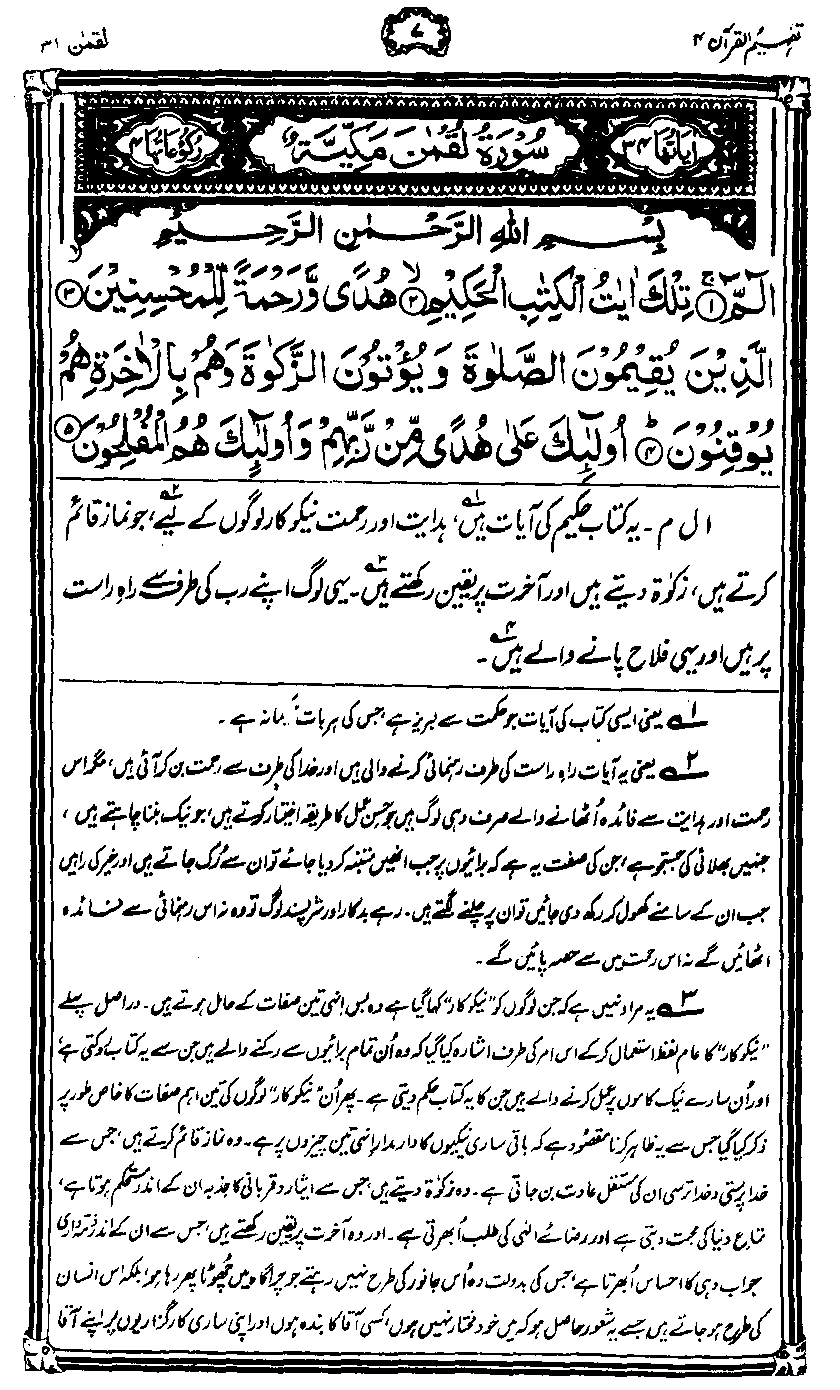 تفہیم القرآن ۴
۷
لقمٰن ۳۱
اٰیاتُہَا ۳۴
سُوْرَۃُ لُقْمٰنَ مَکِّیَّۃٌ
رُکُوْعَاتُہَا ۴
بِسْمِ اللّٰہِ الرَّحْمٰنِ الرَّحِیْمِ
الٓمّٓ ۚ﴿۱﴾ تِلْكَ اٰیٰتُ الْكِتٰبِ الْحَكِیْمِ ۙ﴿۲﴾ هُدًى وَّرَحْمَةً لِّلْمُحْسِنِیْنَ ۙ﴿۳﴾
الَّذِیْنَ یُقِیْمُوْنَ الصَّلٰوةَ وَیُؤْتُوْنَ الزَّكٰوةَ وَهُمْ بِالْاٰخِرَةِ هُمْ
یُوْقِنُوْنَ ؕ﴿۴﴾ اُولٰٓئِكَ عَلٰى هُدًى مِّنْ رَّبِّهِمْ وَاُولٰٓئِكَ هُمُ الْمُفْلِحُوْنَ ﴿۵﴾
ا ل م ۔ یہ کتابِ حکیم کی آیات ہیں۱؎، ہدایت اور رحمت نیکوکار لوگوں کے لیے۲؎، جو نماز قائم
کرتے ہیں، زکوٰۃ دیتے ہیں اور آخرت پر یقین رکھتے ہیں۳؎۔ یہی لوگ اپنے رب کی طرف سے راہِ راست
پر ہیں اور یہی فلاح پانے والے ہیں۴؎۔
۱؎ یعنی ایسی کتاب کی آیات جو حکمت سے لبریز ہے، جس کی ہر بات ہے۔
۲؎ یعنی یہ آیات راہِ راست کی طرف رہنمائی کرنے والی ہیں اور خدا کی طرف سے رحمت بن کر آئی ہیں، مگر اس
رحمت اور ہدایت سے فائدہ اُٹھانے والے صرف وہی لوگ ہیں جو حسنِ عمل کا طریقہ اختیار کرتے ہیں، جو نیک بننا چاہتے ہیں،
جنہیں بھلائی کی جستجو ہے، جن کی صفت یہ ہے کہ برائیوں پر جب انہیں متنبہ کر دیا جائے تو ان سے رُک جاتے ہیں اور خیر کی راہیں
جب ان کے سامنے کھول کر رکھ دی جائیں تو ان پر چلنے لگتے ہیں۔ رہے بدکار اور شرپسند لوگ تو وہ نہ اس رہنمائی سے فائدہ
اٹھائیں گے نہ اس رحمت میں سے حصہ پائیں گے۔
۳؎ یہ مراد نہیں ہے کہ جن لوگوں کو ”نیکوکار“ کہا گیا ہے وہ بس انہی تین صفات کے حامل ہوتے ہیں۔ دراصل پہلے
”نیکوکار“ کا عام لفظ استعمال کر کے اس امر کی طرف اشارہ کیا گیا کہ وہ اُن تمام برائیوں سے رُکنے والے ہیں جن سے یہ کتاب روکتی ہے،
اور اُن سارے نیک کاموں پر عمل کرنے والے ہیں جن کا یہ کتاب حکم دیتی ہے۔ پھر اُن ”نیکوکار“ لوگوں کی تین اہم صفات کا خاص طور پر
ذکر کیا گیا جس سے یہ ظاہر کرنا مقصود ہے کہ باقی ساری نیکیوں کا دارومدار انہی تین چیزوں پر ہے۔ وہ نماز قائم کرتے ہیں، جس سے
خدا پرستی و خدا ترسی ان کی مستقل عادت بن جاتی ہے۔ وہ زکوٰۃ دیتے ہیں، جس سے ایثار و قربانی کا جذبہ ان کے اندر مستحکم ہوتا ہے،
متاعِ دنیا کی محبت دبتی ہے اور رضائے الٰہی کی طلب اُبھرتی ہے۔ اور وہ آخرت پر یقین رکھتے ہیں، جس سے ان کے اندر ذمہ داری
جواب دہی کا احساس اُبھرتا ہے، جس کی بدولت وہ اُس جانور کی طرح نہیں رہتے جو چراگاہ میں چھوٹا پھر رہا ہو، بلکہ اس انسان
کی طرح ہو جاتے ہیں جسے یہ شعور حاصل ہو کہ میں خود مختار نہیں ہوں، کسی آقا کا بندہ ہوں اور اپنی ساری کارگزاریوں پر اپنے آقا